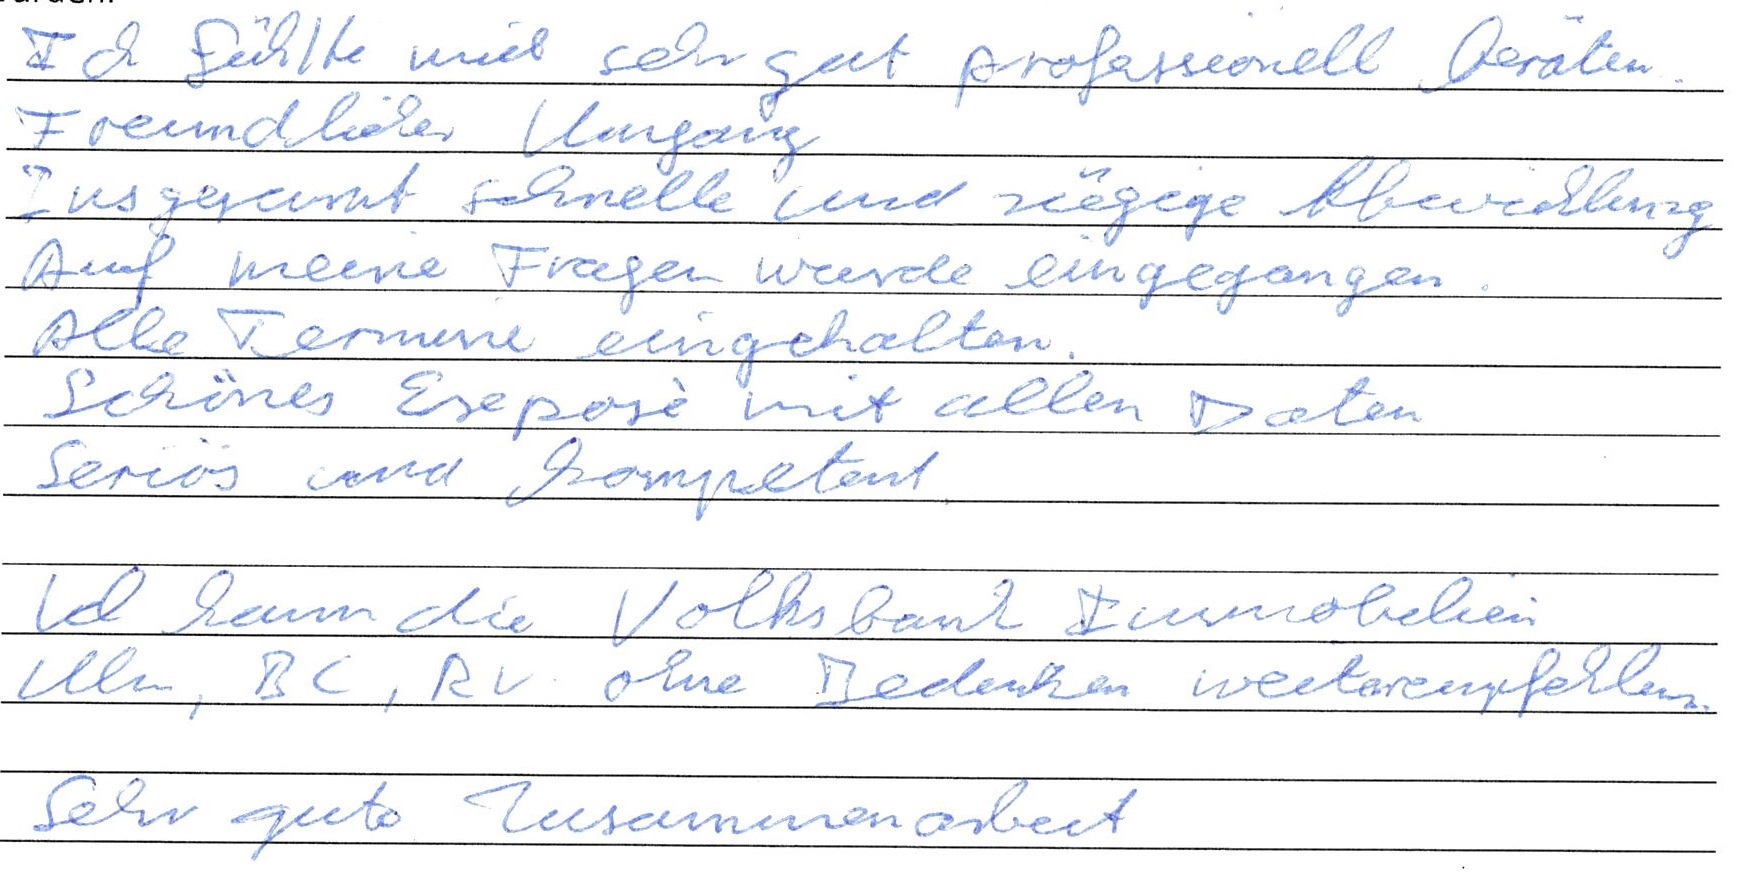 Ich fühlte mich sehr gut professionell beräten.
Freundlicher Umgang
Insgesamt schnelle und zügige Abwicklung
Auf meine Fragen wurde eingegangen.
Alle Termine eingehalten.
Schönes Exeposè mit allen Daten
Seriös und kompetent
Ich kann die Volksbank Immobilien
Ulm, BC, RV ohne Bedenken weiterempfehlen.
Sehr gute Zusammenarbeit